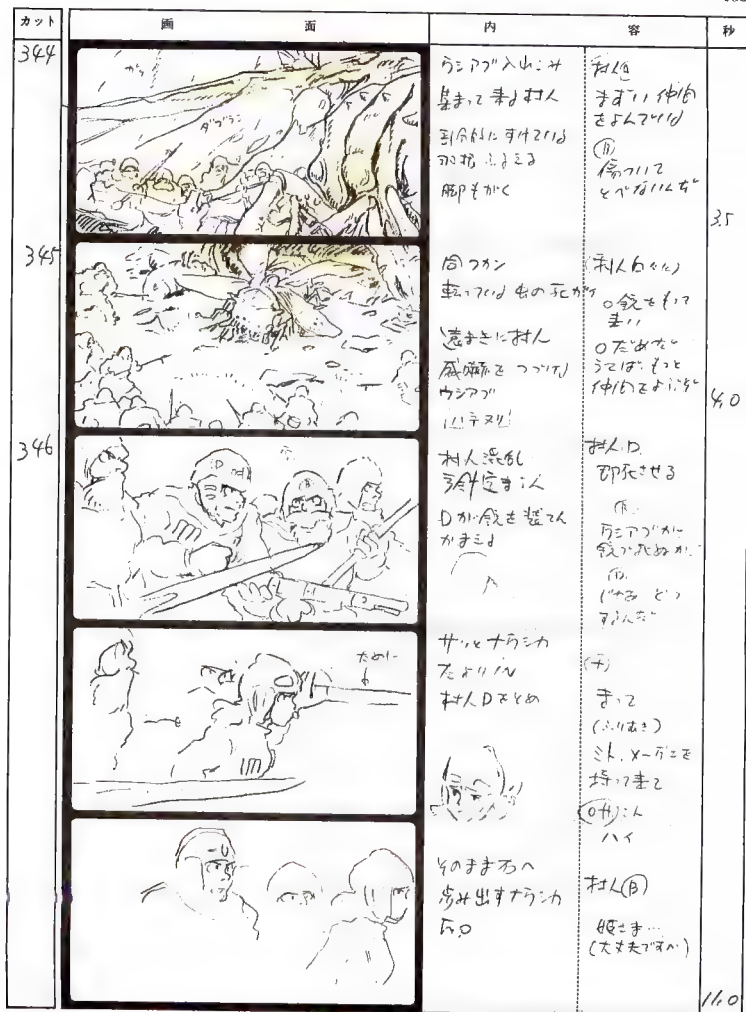 カット
画面
内容
秒
344
ダブラシ
ウシアブ
集まって来る村人
部分的にすけている
羽根ふるえる
脚もがく
まずい 仲間
をよんでいる
傷ついて
とべないんだ
3.5
345
同フカン
転っている虫の死がい
遠まきに村人
威嚇をつづける
ウシアブ
○銃をもって
来い
○だめだ
うてばもっと
仲間をよぶぞ
4.0
346
村人混乱
Dが銃を装てん
かまえる
村人D
即死させる
ウシアブが
銃で死ぬか
じゃあ どう
するんだ
ために
サッとナウシカ
村人Dをとめ
まって
(ふりむき)
ミト、メーヴェを
持って来て
ハイ
そのまま右へ
歩み出すナウシカ
F.O
村人B
姫さま…
(大丈夫ですか)
11.0